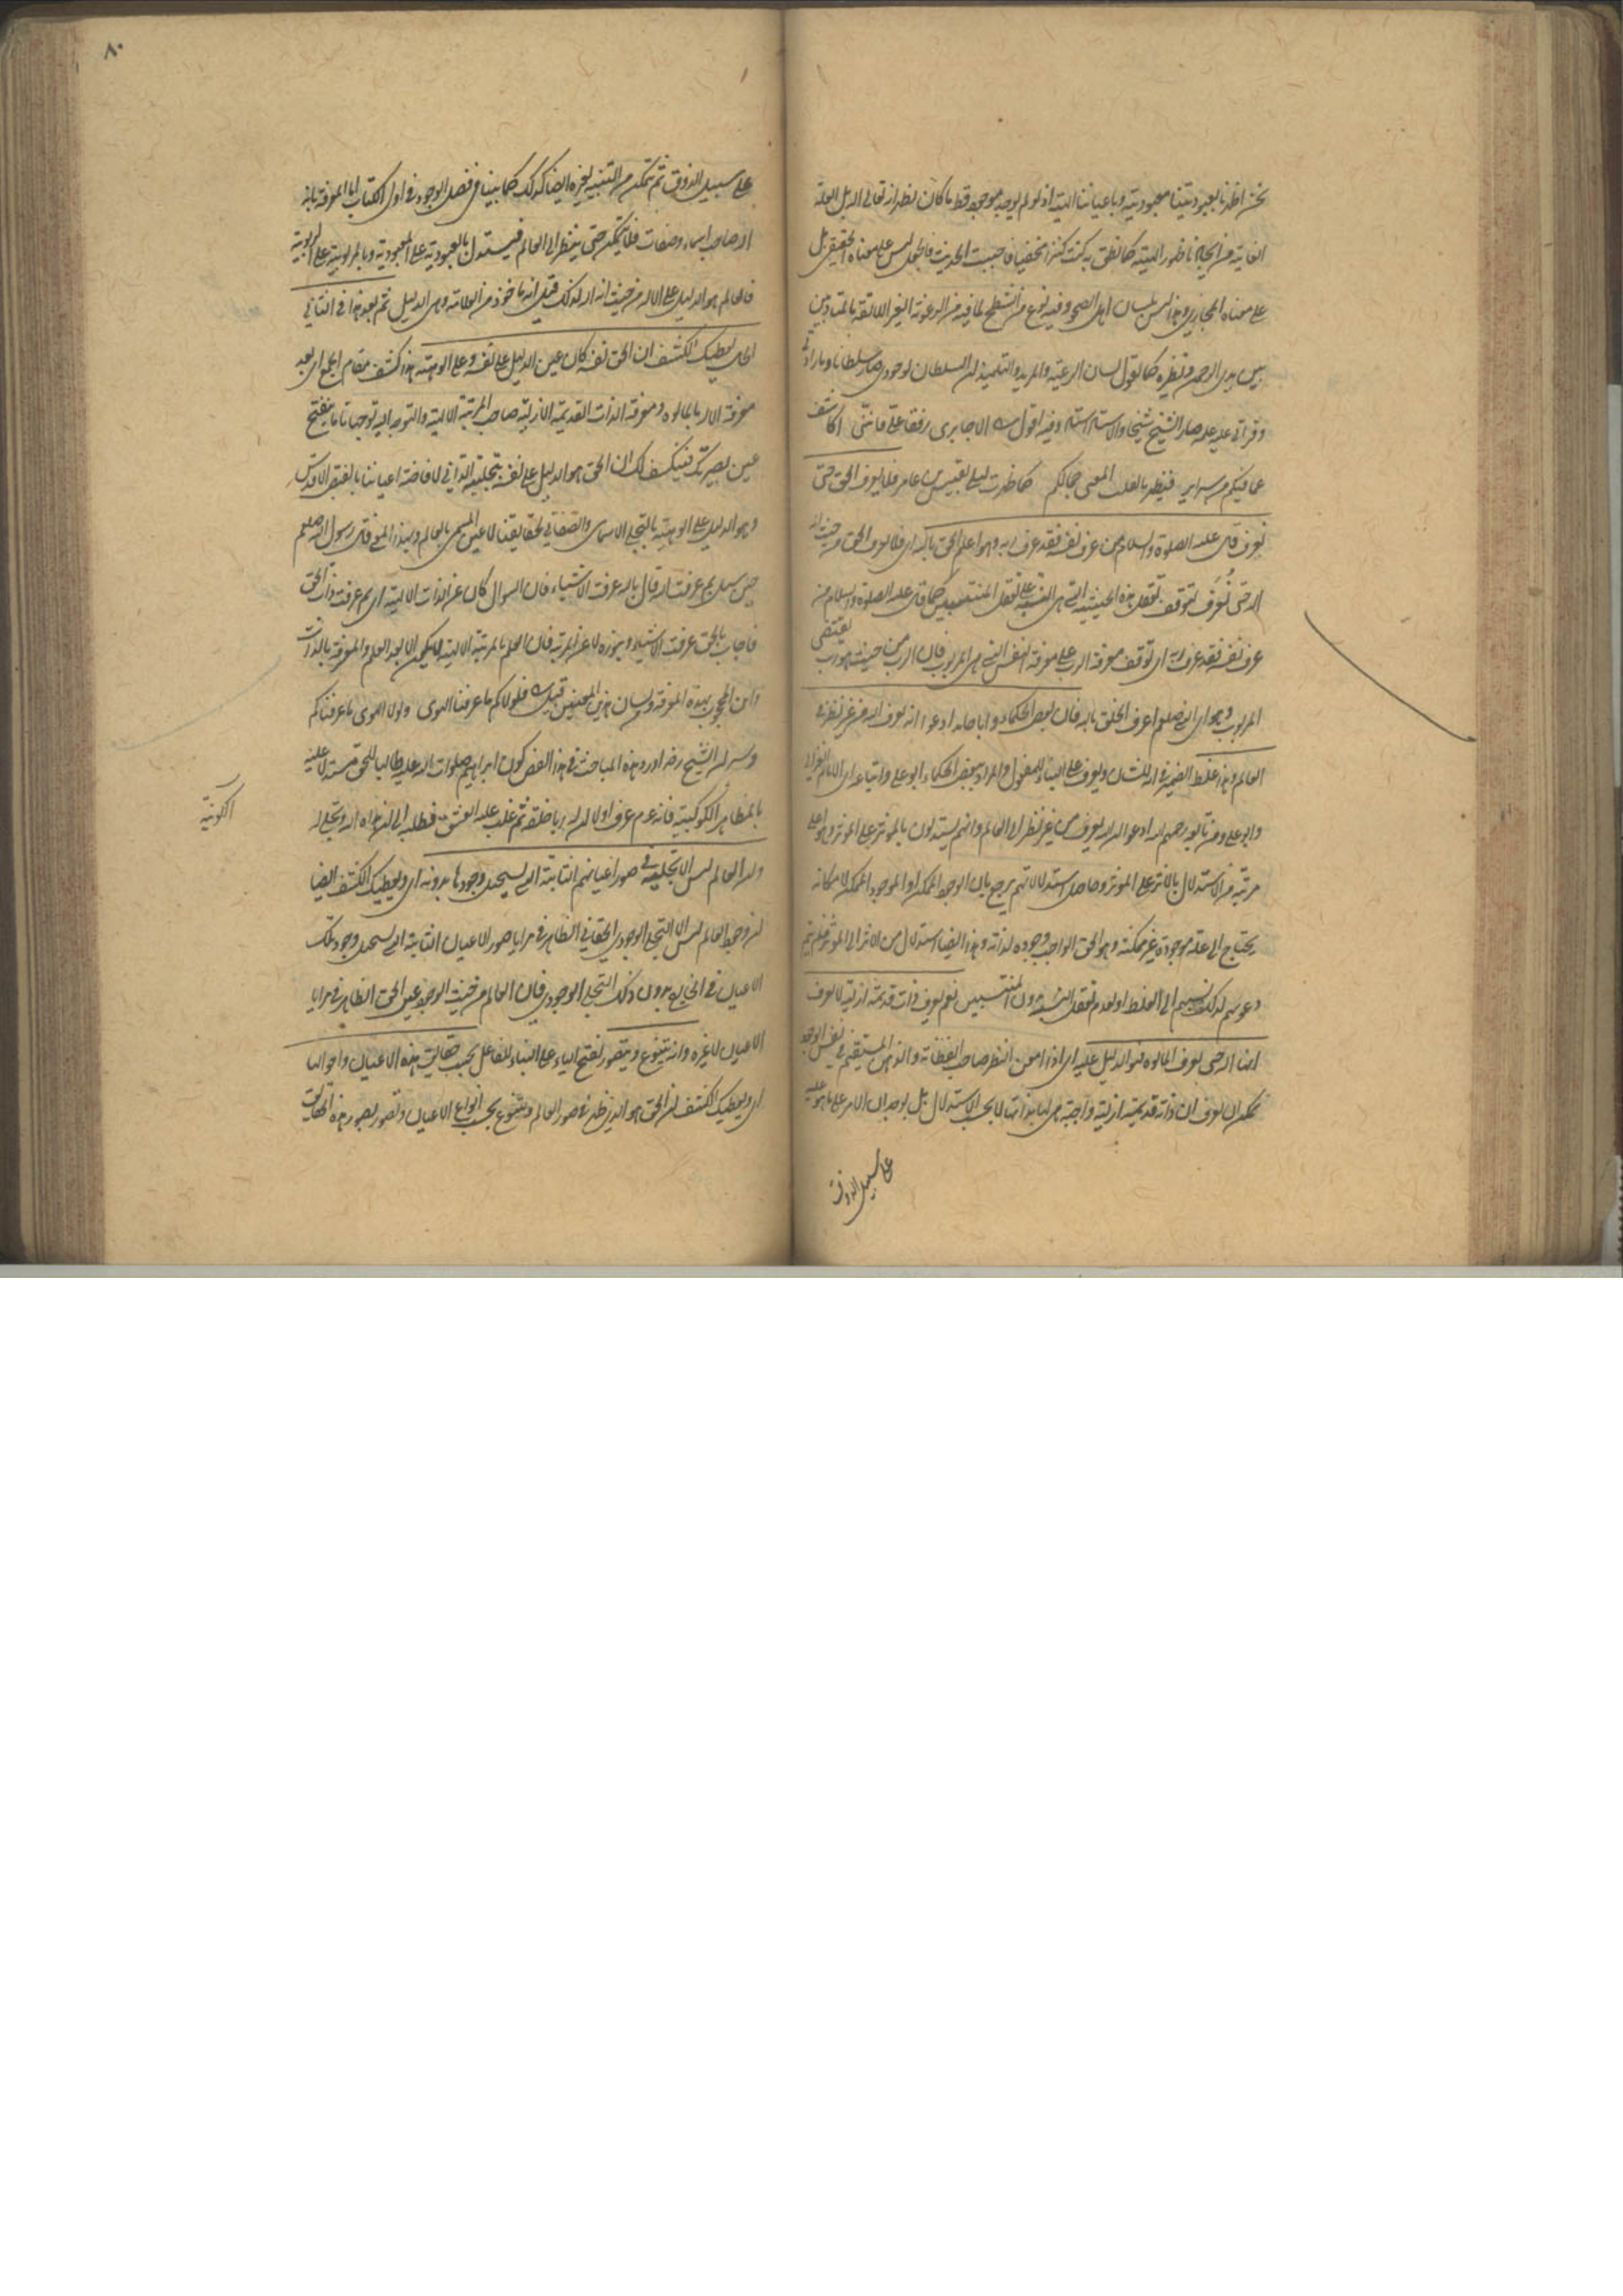 نحن اظهرنا بعبوديتنا معبوديته وباعياننا الهيته اذ لو لم يوجد موجود قط ما كان يظهر انه تعالى اله بل العلة
الغائية من ايجادنا ظهور الهيته كما نطق به كنت كنزا مخفيا فاحببت الحديث فالجعل ليس على معناه الحقيقي بل
على معناه المجازي وهذا ليس بلسان اهل الصحو وفيه نوع من الشطح لما فيه من الرعونة الغير اللائقة بالمتأدبين
بين يدي الرحمن ونظيره كما يقول لسان الرعية والمريد والتلميذ ان السلطان بوجودي صار سلطانا وبارادتي
وقراتي عليه صار الشيخ شيخا والاستاد استادا وفيه اقول
كما ظهرت ليلى بقيس بن عامر فلا يعرف الحق حتى
نعرف قال عليه الصلوة والسلام من عرف نفسه فقد عرف ربه وهو اعلم الخلق بالله اي فلا يعرف الحق من حيث انه
اله حتى نُعرف لتوقف تعقل هذه الحيثية التي هي النسبة على تعقل المنتسبين كما قال عليه الصلوة والسلام من
عرف نفسه فقد عرف ربه اي توقف معرفة الرب على معرفة النفس التي هي المربوب فان الرب من حيث هو رب يقتضي
المربوب وهو اي النبي صلعم اعرف الخلق بالله فان بعض الحكماء وابا حامد ادعوا انه يعرف الله من غير نظر في
العالم وهذا غلط الضمير في انه للشان ويعرف على البناء للمفعول والمراد ببعض الحكماء ابو علي واتباعه اي الامام الغزالي
وابو علي ومن تابعه رحمهم الله ادعوا ان الله يعرف من غير نظر الى العالم وانهم يستدلون بالمؤثر على الاثر وهو اعلى
مرتبة من الاستدلال بالاثر على المؤثر وحاصل استدلالاتهم يرجع بان الوجود الممكن او الموجود الممكن لامكانه
يحتاج الى علة موجودة غير ممكنة وهو الحق الواجب وجوده لذاته وهذا ايضا استدلال من الاثر الى المؤثر فلم يتم
دعويهم لذلك نسبهم الى الغلط او لعدم تعقل النسبة بدون المنتسبين نعم يعرف ذات قديمة ازلية لا يعرف
انها اله حتى يعرف المالوه فهو الدليل عليه اي اذا امعن النظر صاحب الفطانة والذهن المستقيم في نفس الوجود
يمكن ان يعرف ان ذاته قديمة ازلية واجبة هي لها بذاتها لا بحسب الاستدلال بل بوجدان الامر على ما هو عليه
على سبيل الذوق
٨٠
على سبيل الذوق ثم تمكن من التنبيه لغيره ايضا كذلك كما بينا في فصل الوجود في اول الكتاب اما المعرفة بانه
اله صاحب اسماء وصفات فلا يمكن حتى ينظر الى العالم فيستدل بالعبودية على المعبودية وبالمربوبية على الربوبية
فالعالم هو الدليل على الاله من حيث انه اله لذلك قيل انه ماخوذ من العلامة وهي الدليل ثم بعد هذا في الثاني
الحال يعطيك الكشف ان الحق نفسه كان عين الدليل على نفسه وعلى الوهيته هذا كشف مقام الجمع اي بعد
معرفة الاله بالمالوه ومعرفة الذات القديمة الازلية صاحب المرتبة الالهية والتوجه اليه توجها تاما ينفتح
عين بصيرتك فينكشف لك ان الحق هو الدليل على نفسه بتجليه الذاتي لافاضة اعياننا بالفيض الاقدس
وهو الدليل على الوهيته بالتجلي الاسمائي والصفاتي لحقايقنا لا عين المسمى بالعالم ولهذا المعنى قال رسول الله صلعم
حين سئل بم عرفت الله قال بالله عرفت الاشياء فان السؤال كان عن الذات الالهية اي بم عرفت ذات الحق
فاجاب بالحق عرفت الاشياء وبنوره لا عن المرتبة فان العلم بالمرتبة الالهية لا يمكن الا بعد العلم والمعرفة بالذات
واين المحجوب بهذه المعرفة ولسان هذين المعنيين قيل فلولاكم ما عرفنا الهوى ولولا الهوى ما عرفناكم
وسر ان الشيخ رض اورد هذه المباحث في هذا الفص كون ابراهيم صلوات الله عليه طالبا للحق مستدلا عليه
بالمظاهر الكوكبية فانه عم عرف اولا ان له ربا خلقه ثم غلب عليه العشق فطلبه الى ان هداه الله وتجلى له
الكونية
وان العالم ليس الا تجليه في صور اعيانهم الثابتة التي يستحيل وجودها بدونه اي ويعطيك الكشف ايضا
ان وجود العالم ليس الا التجلي الوجودي الحقاني الظاهر في مرايا صور الاعيان الثابتة التي يستحيل وجود تلك
الاعيان في الخارج بدون ذلك التجلي الوجودي فان العالم من حيث الوجود عين الحق الظاهر في مرايا
الاعيان لا غيره وانه يتنوع ويتصور بفتح الياء على البناء للفاعل بحسب حقايق هذه الاعيان واحوالها
اي ويعطيك الكشف ان الحق هو الذي ظهر في صور العالم وتنوع بحسب انواع الاعيان وتصور بصور هذه الحقايق